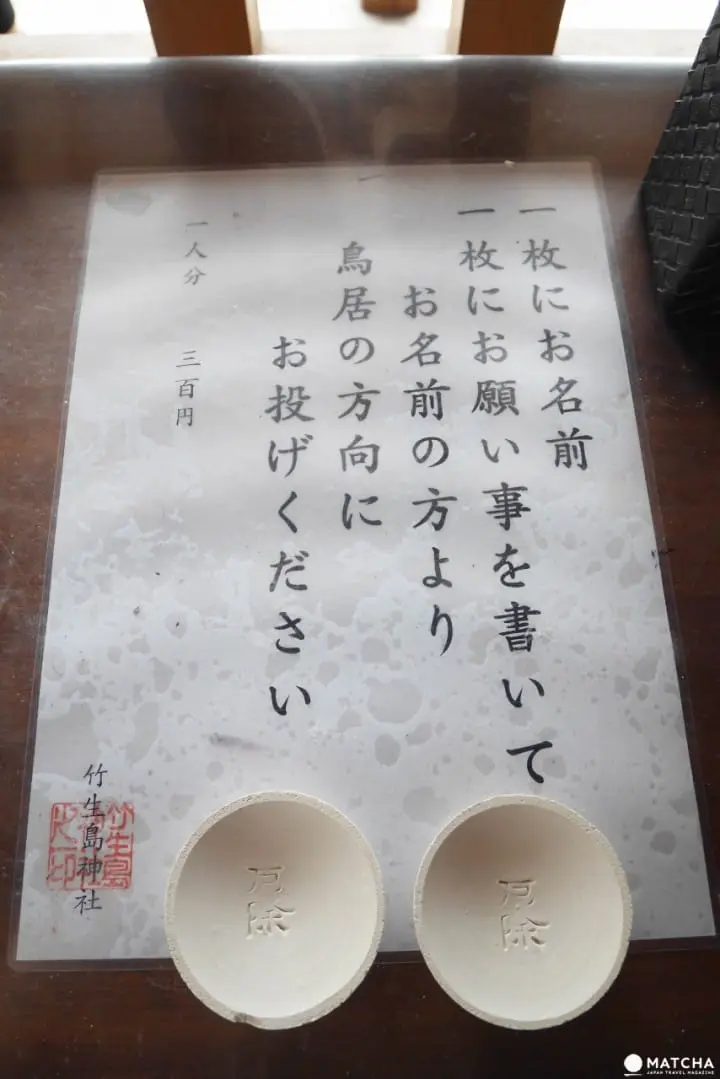 一枚にお名前
一枚にお願い事を書いて
お名前の方より
鳥居の方向に
お投げください
一人分 三百円
竹生島神社
竹生島
厄除
厄除
MATCHA
JAPAN TRAVEL MAGAZINE